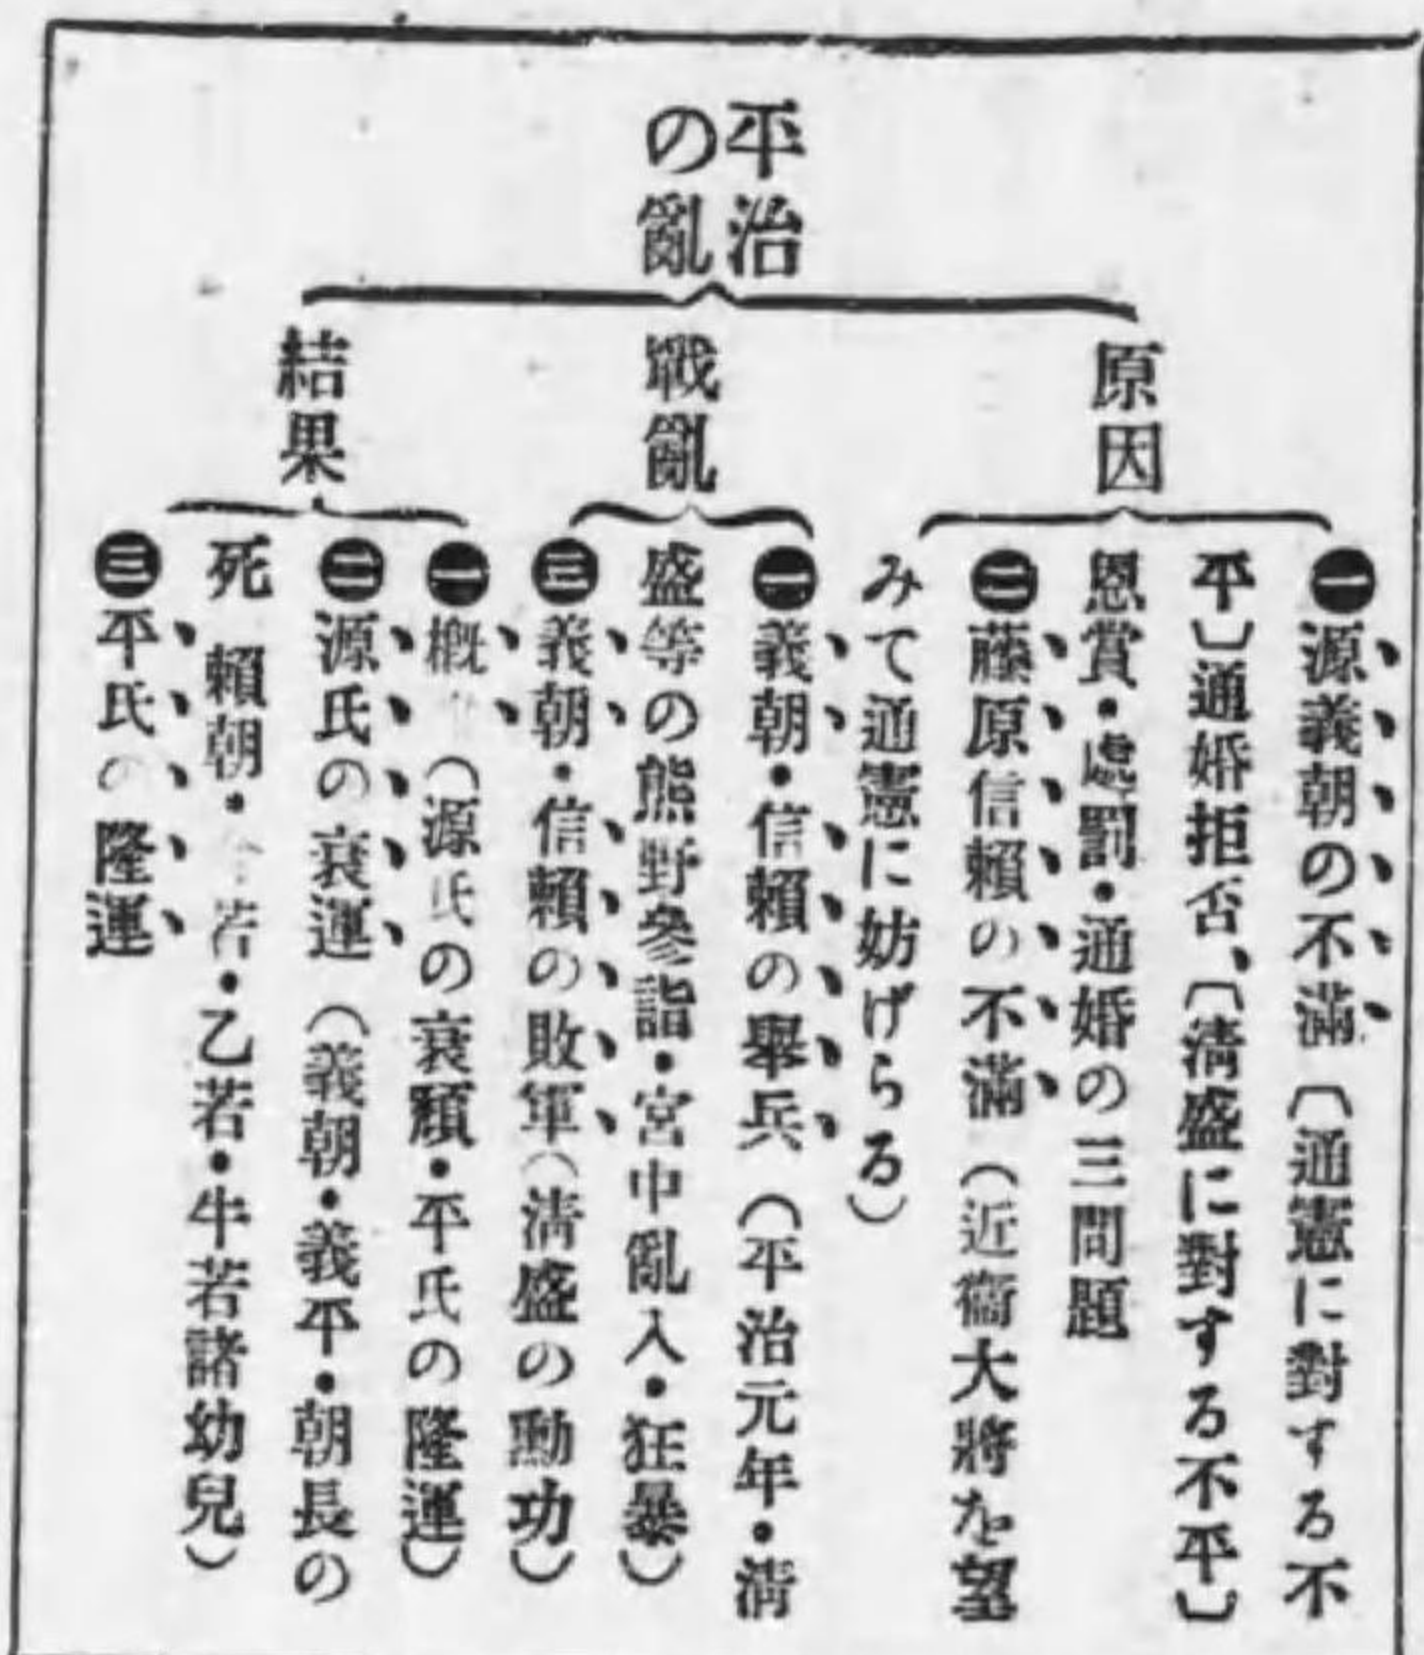 平治
の亂
原因
㊀源義朝の不滿〔通憲に對する不
平〕通婚拒否、〔淸盛に對する不平〕
恩賞・處罰・通婚の三問題
㊁藤原信賴の不滿（近衞大將を望
みて通憲に妨げらる）
戰亂
㊀義朝・信賴の擧兵（平治元年・淸
盛等の熊野參詣・宮中亂入・狂暴）
㊁義朝・信賴の敗軍（淸盛の勳功）
結果
㊀概（源氏の衰頽・平氏の隆運）
㊁源氏の衰運（義朝・義平・朝長の
死 賴朝・若・乙若・牛若諸幼兒）
㊂平氏の隆運